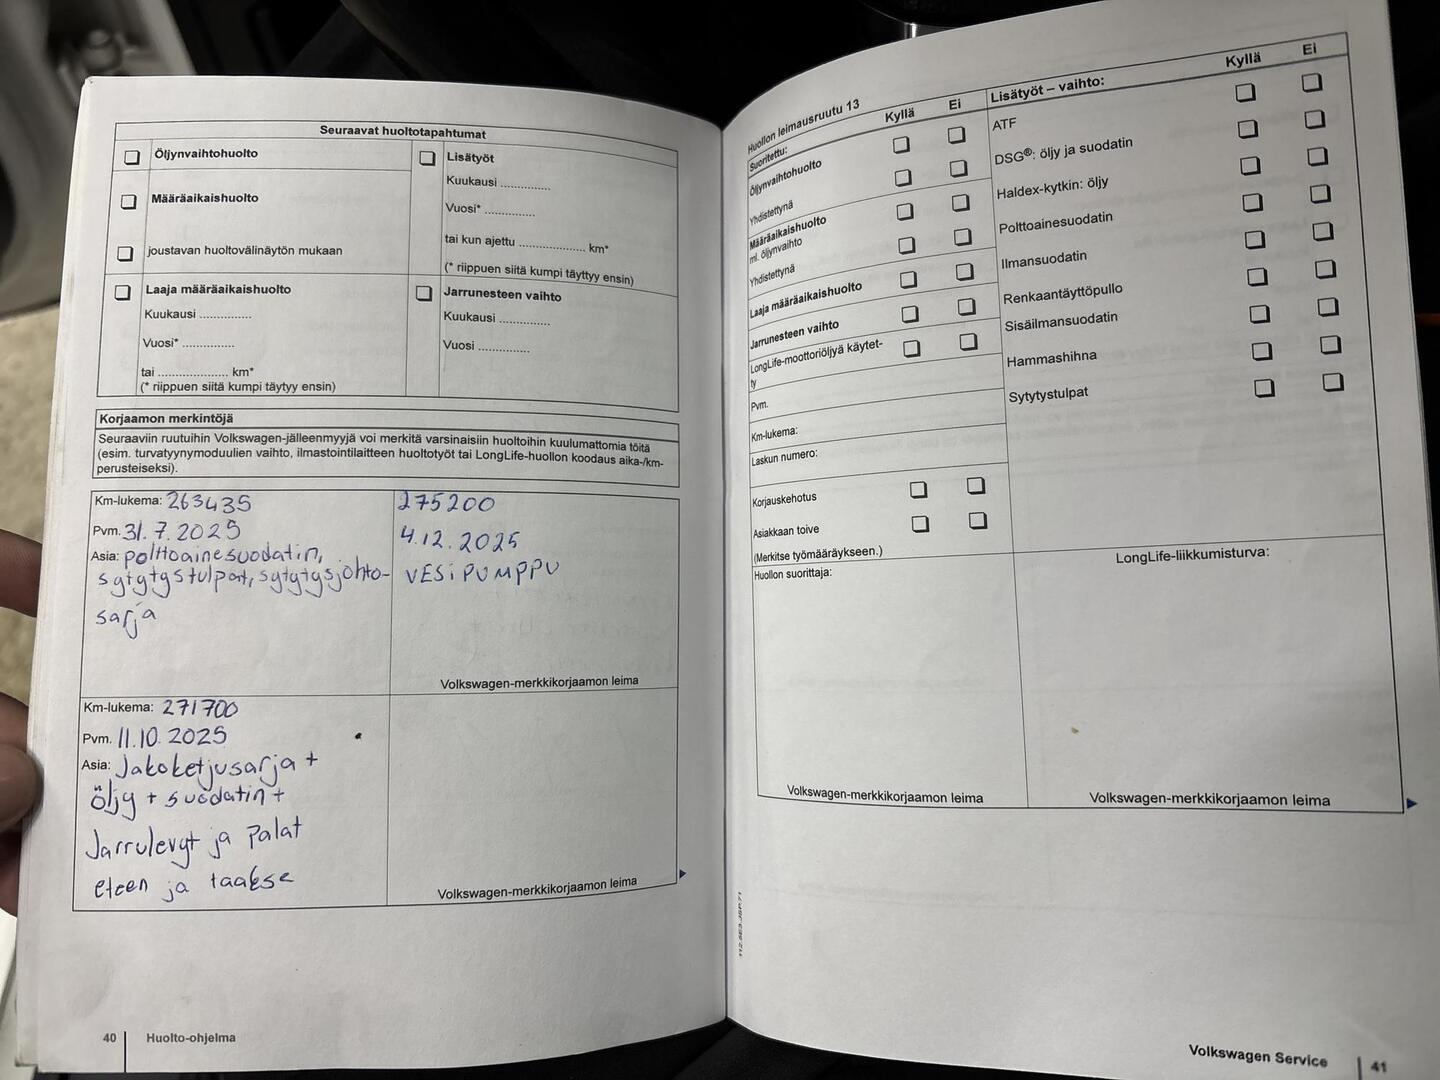 Seuraavat huoltotapahtumat
Öljynvaihtohuolto
Määräaikaishuolto
joustavan huoltovälinäytön mukaan
Lisätyöt
Kuukausi ..............
Vuosi* ..............
tai kun ajettu .................. km*
(* riippuen siitä kumpi täyttyy ensin)
Laaja määräaikaishuolto
Kuukausi ..............
Vuosi* ..............
tai ................... km*
(* riippuen siitä kumpi täytyy ensin)
Jarrunesteen vaihto
Kuukausi ..............
Vuosi ..............
Korjaamon merkintöjä
Seuraaviin ruutuihin Volkswagen-jälleenmyyjä voi merkitä varsinaisiin huoltoihin kuulumattomia töitä
(esim. turvatyynymoduulien vaihto, ilmastointilaitteen huoltotyöt tai LongLife-huollon koodaus aika-/km-
perusteiseksi).
Km-lukema: 263435
Pvm. 31.7.2025
Asia: polttoainesuodatin,
sytytystulpat, sytytysjohto-
sarja
275200
4.12.2025
VESIPUMPPU
Volkswagen-merkkikorjaamon leima
Km-lukema: 271700
Pvm. 11.10.2025
Asia: Jakoketjusarja +
öljy + suodatin +
Jarrulevyt ja palat
eteen ja taakse
Volkswagen-merkkikorjaamon leima
40 Huolto-ohjelma
Huollon leimausruutu 13
Suoritettu: Kyllä Ei
Öljynvaihtohuolto
Yhdistettynä
Määräaikaishuolto
ml. öljynvaihto
Yhdistettynä
Laaja määräaikaishuolto
Jarrunesteen vaihto
LongLife-moottoriöljyä käytet-
ty
Pvm.
Km-lukema:
Laskun numero:
Korjauskehotus
Asiakkaan toive
(Merkitse työmääräykseen.)
Lisätyöt – vaihto: Kyllä Ei
ATF
DSG®: öljy ja suodatin
Haldex-kytkin: öljy
Polttoainesuodatin
Ilmansuodatin
Renkaantäyttöpullo
Sisäilmansuodatin
Hammashihna
Sytytystulpat
Huollon suorittaja:
LongLife-liikkumisturva:
Volkswagen-merkkikorjaamon leima
Volkswagen-merkkikorjaamon leima
Volkswagen Service 41